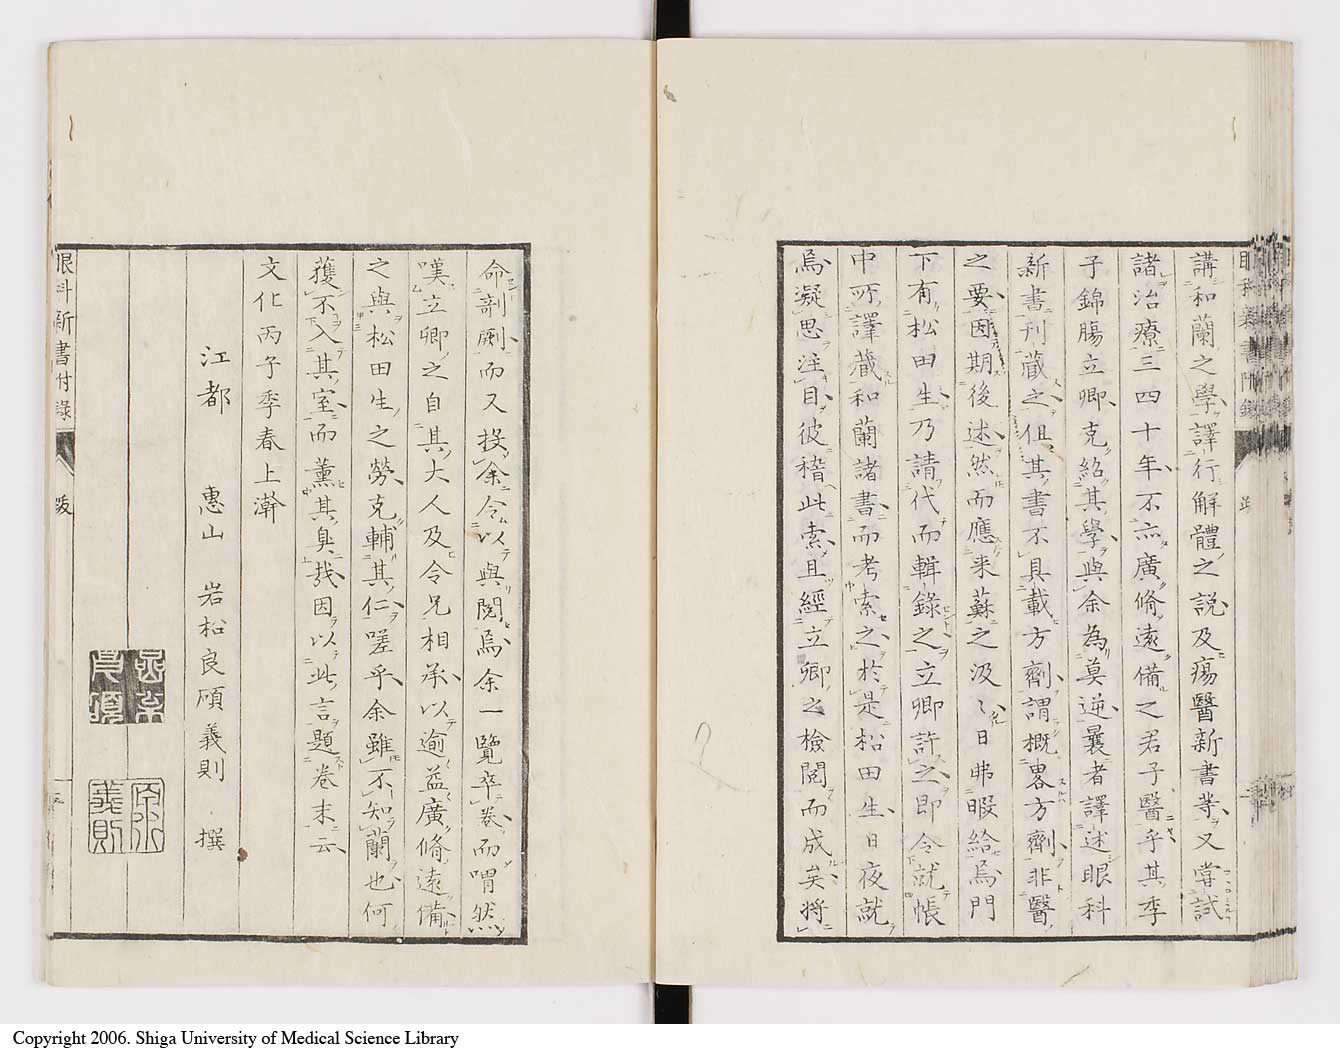 講和蘭之學譯行解體之説及瘍醫新書等又嘗試
諸治療三四十年不亦廣脩遠備之君子醫乎其季
子錦腸立卿克紹其學與余為莫逆曩者譯述眼科
新書刊蔵之但其書不具載方劑謂概畧方劑非醫
之要因期後述然而應来蘇之汲〻日弗暇給焉門
下有松田生乃請代而輯錄之立卿許之即令就帳
中所譯蔵和蘭諸書而考索之於是松田生日夜就
焉凝思注目彼稽此索且經立卿之檢閲而成矣将
命剞劂而又投余令以與閲焉余一覽卒卷而喟然
嘆立卿之自其大人及令兄相承以逾益廣脩遠備
之與松田生之勞克輔其仁嗟乎余雖不知蘭也何
獲不入其室而薫其臭哉因以此言題卷末云
文化丙子季春上澣
江都 惠山 岩松良碩義則 撰
義則
眼科新書付錄
跋
Copyright 2006. Shiga University of Medical Science Library